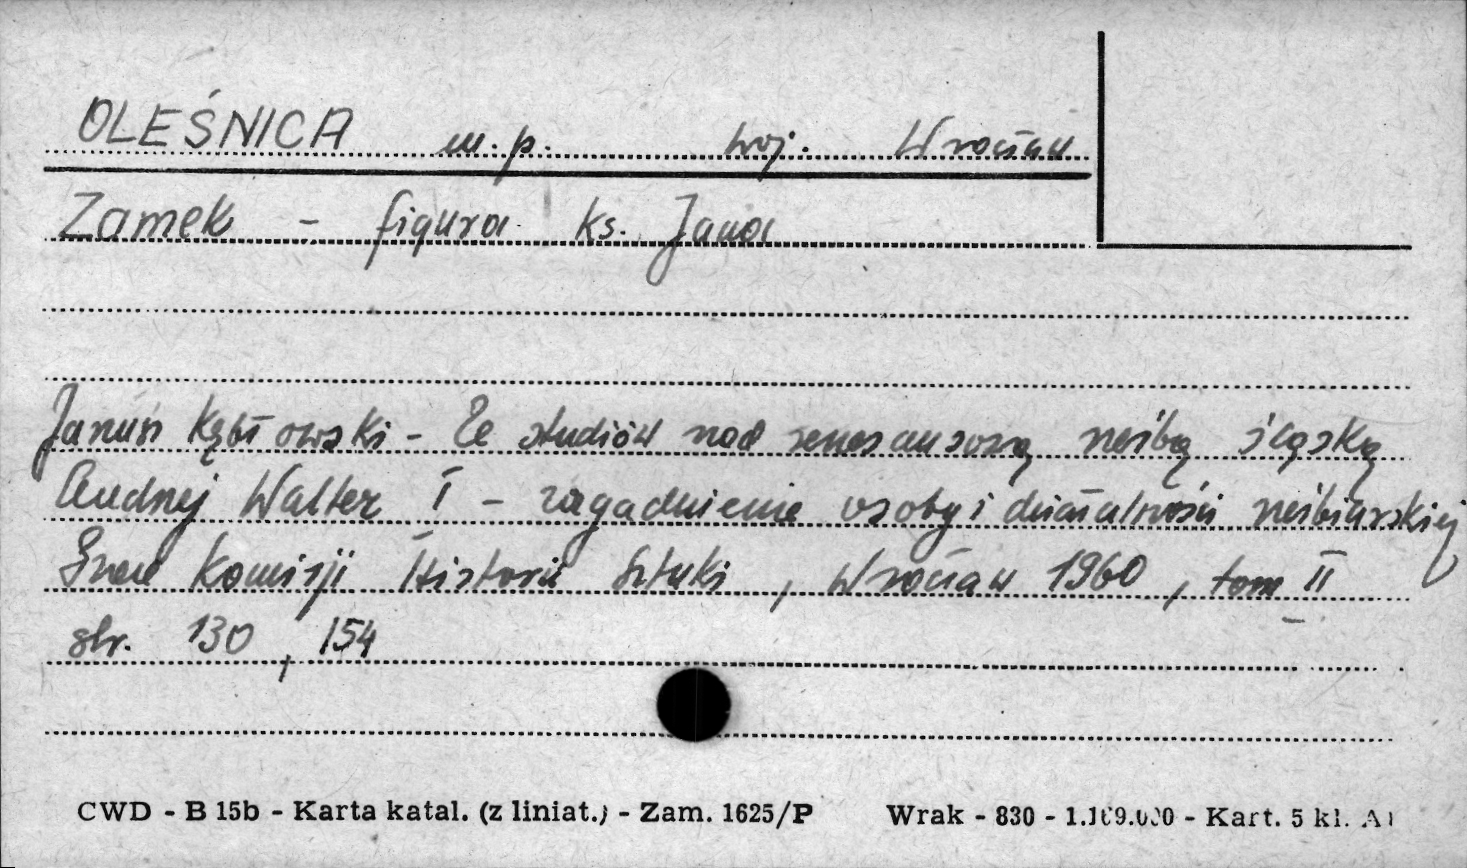 OLEŚNICA m.p. woj. Wrocław
Zamek - figura ks. Jana
Janusz Kębłowski - Ze studiów nad renesansową rzeźbą śląską
Andrzej Walter I - zagadnienie osoby i działalności rzeźbiarskiej
Prace Komisji Historii Sztuki, Wrocław 1960, tom II
str. 130, 154
CWD - B 15b - Karta katal. (z liniat.) - Zam. 1625/P Wrak - 830 - Kart. 5 kl.